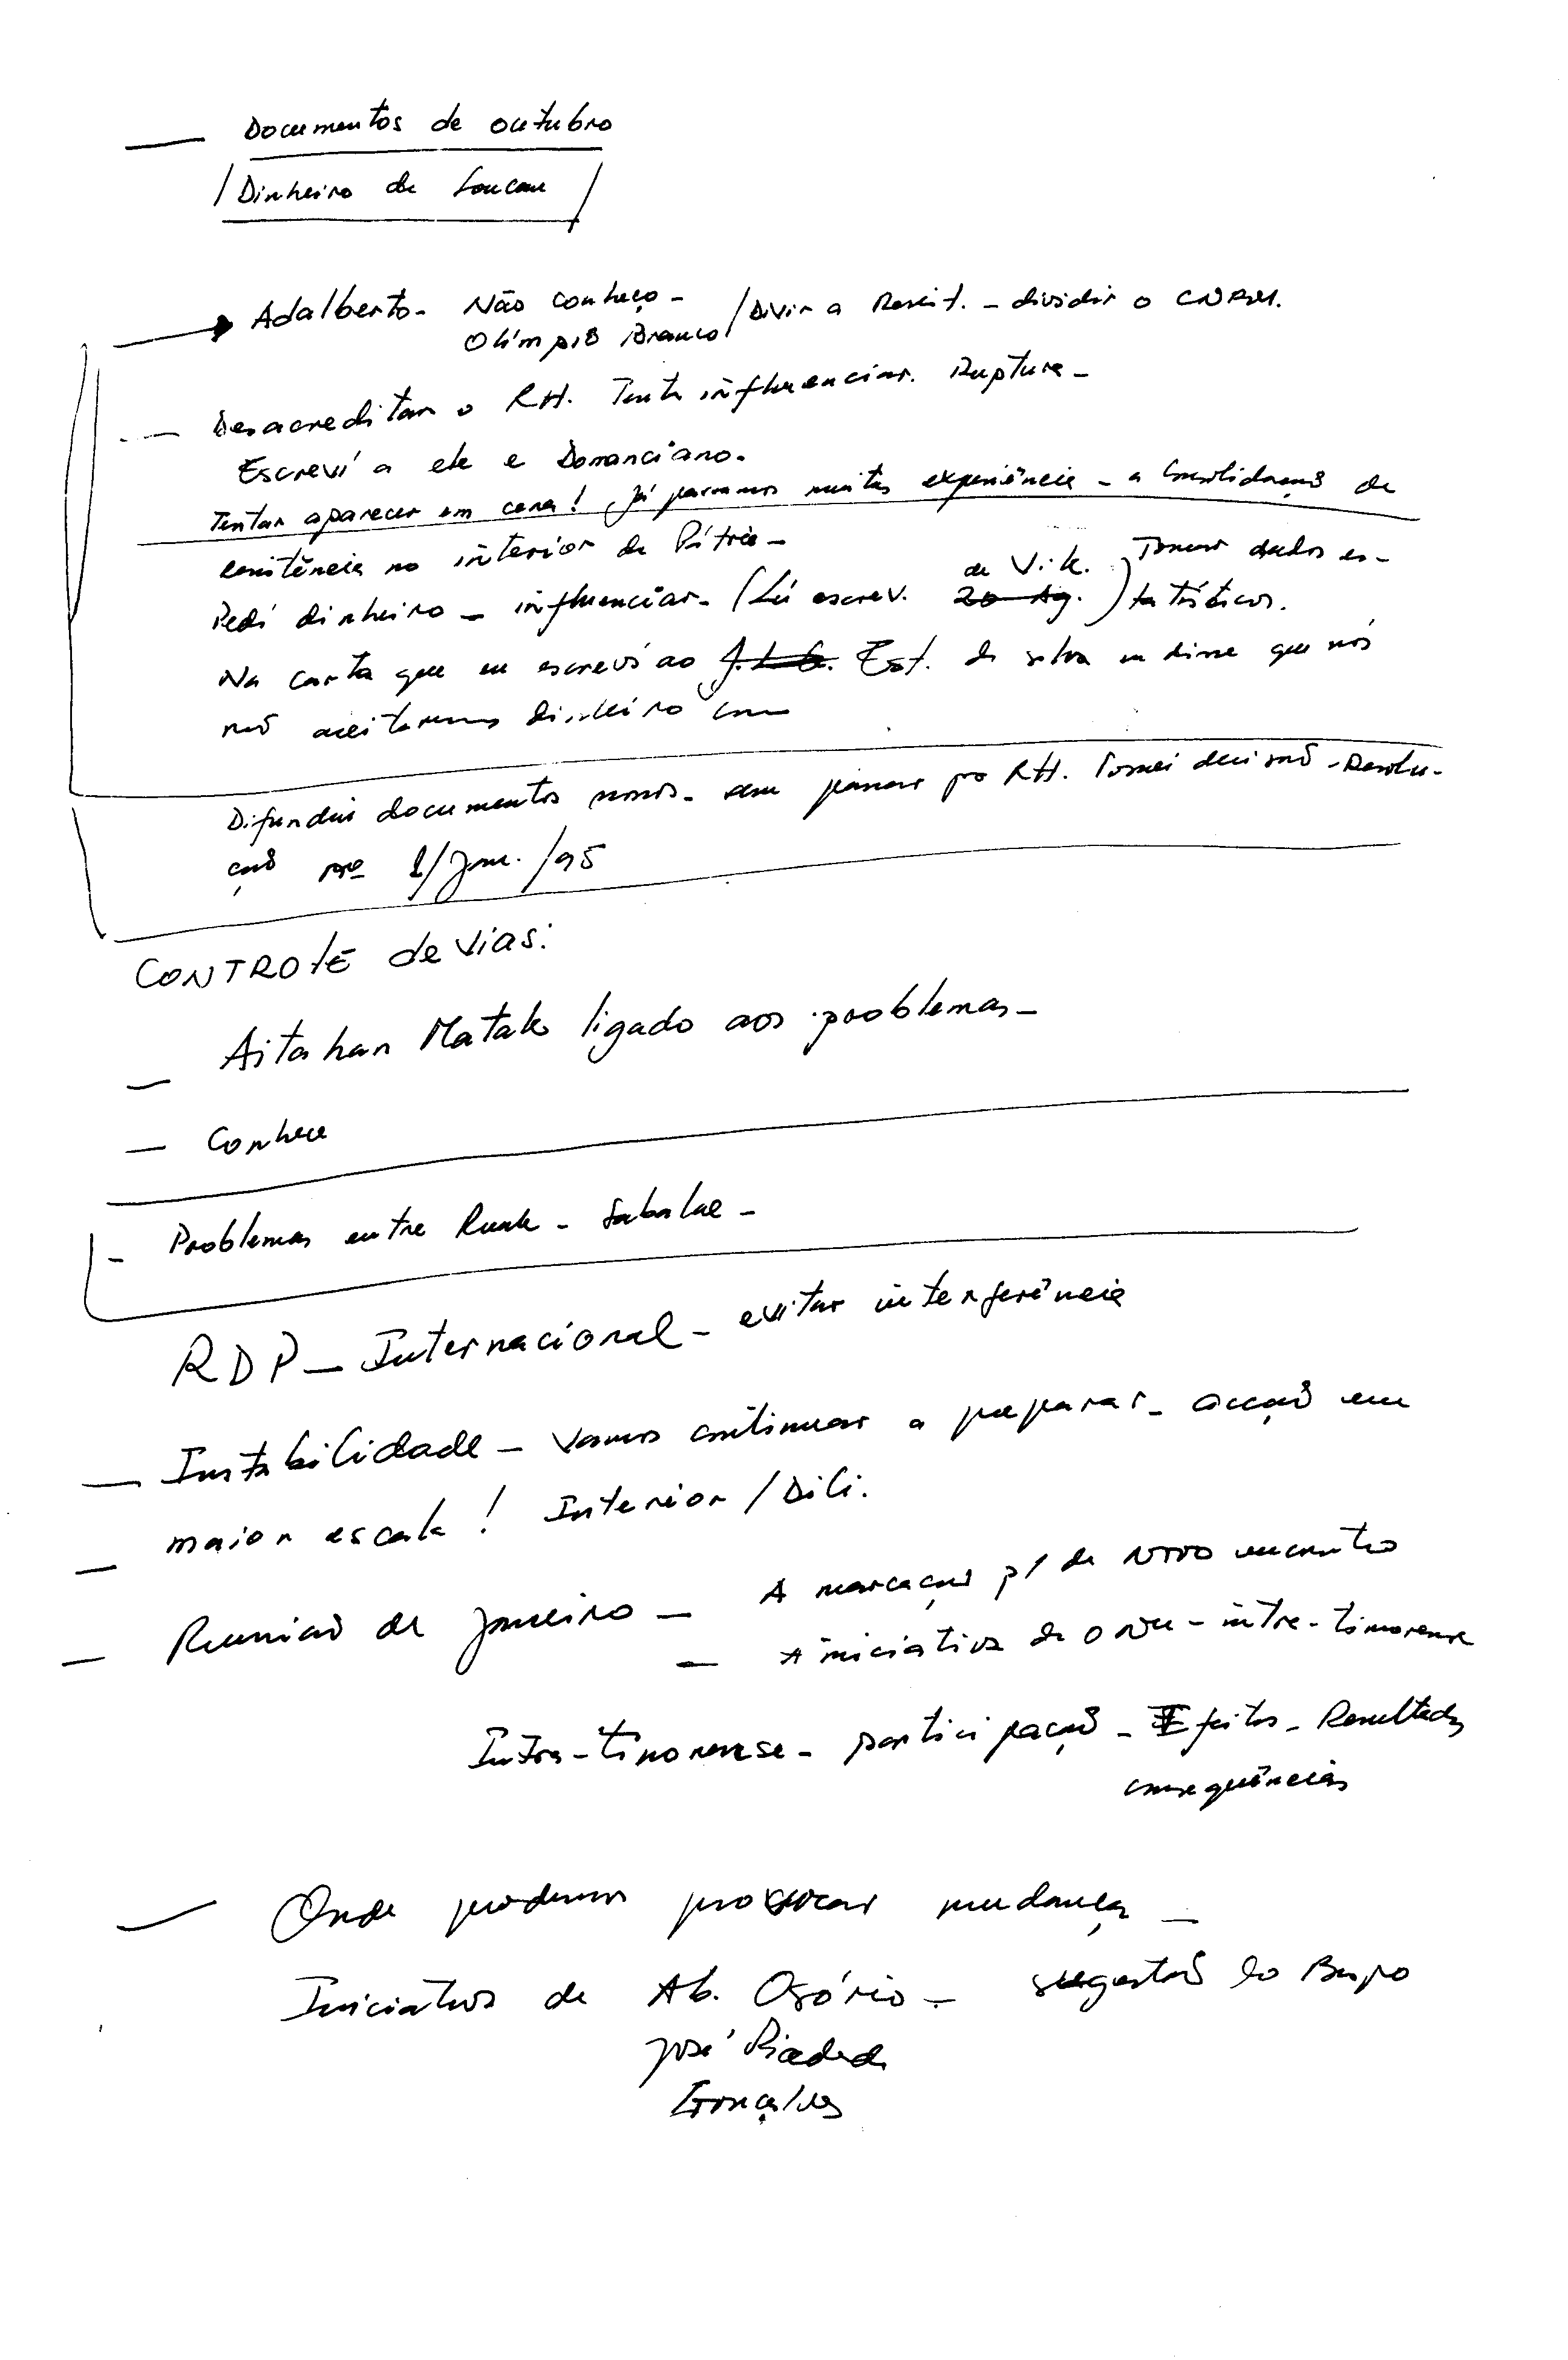 — Documentos de outubro
/Dinheiro de Loucau/
Adalberto - Não conheço - /Divir a Resist. - dividir o CNRM.
Olímpio Branco
— Desacreditar o RH. Tenta influenciar. Ruptura -
Escreví a ele e Domanciano.
Tentar aparecer em cena! Já passamos muitas experiência - a Consolidação da
resistência no interior da Pátria -
Pedí dinheiro - influenciar - (Lú escrev. de V.K. 20 Ag.) Tomar dados es-
tatísticos.
Na carta que eu escreví ao J.L.G. Est. da silva eu disse que nós
não aceitaremos dinheiro com
Difundir documentos nossos - sem passar po RH. Tomei decisão - Resolu-
ção nº 1/Jan./95
CONTROLE de vias:
— Aitahan Matak ligado aos problemas -
— Conhece
- Problemas entre Ruak - Sabalae -
RDP - Internacional - evitar interferência
— Instabilidade - vamos continuar a preparar - acção em
— maior escala! Interior / Dili.
— Reunião de Janeiro - A marcação p/ de novo encontro
— A iniciativa da ONU - intre-timorense
Intra-timorense - participação - Efeitos - Resultados
consequências
— Onde podemos provocar mudança -
Iniciativas de Ab. Osório - sugestão do Bispo
José Piedade
Gonçalves